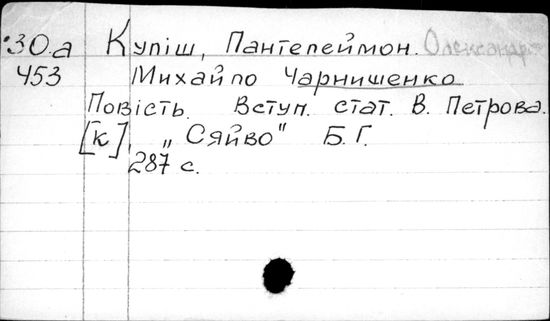 30.а Купіш, Пантелеймон. Олександр
453 Михайло Чарнишенко
Повість. Вступ. стат. В. Петрова.
[К], „Сяйво" Б.Г.
287 с.